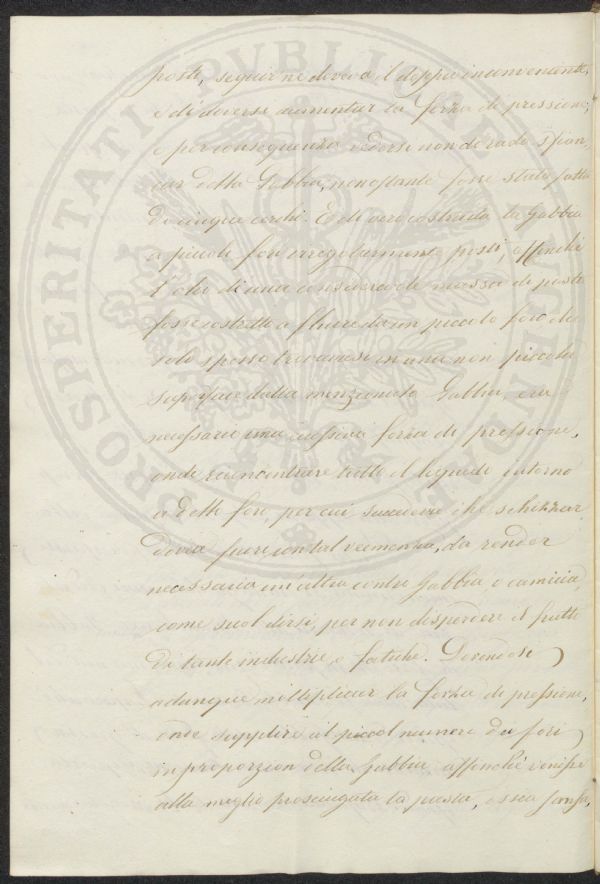 PROSPERITATI PVBLICAE AVGENDAE
posti, seguir ne dovea il doppio inconveniente,
e di doversi aumentar la forza di pressione;
e per conseguenza vedersi non di rado sfian,
car detta Gabbia, nonostante fosse stata fatta
di cinque cerchi. E di vero costruita la Gabbia
a piccoli fori irregolarmente posti, affinchè
l'olio di una considerevole massa di pasta
fosse costretto a fluire da un piccolo foro che
solo spesso trovavasi in una non piccola
superficie della menzionata Gabbia, era
necessaria una eccessiva forza di pressione,
onde rincontrare tutto il liquido intorno
a detto foro, per cui succedeva che schizzar
dovea fuori con tal veemenza, da render
necessaria un'altra contro Gabbia, o camicia,
come suol dirsi, per non disperdere il frutto
di tante industrie, e fatiche. Dovendosi
adunque moltiplicar la forza di pressione,
onde supplire al piccol numero dei fori
in proporzion della Gabbia affinchè venisse
alla meglio prosciugata la pasta, o sia sansa,